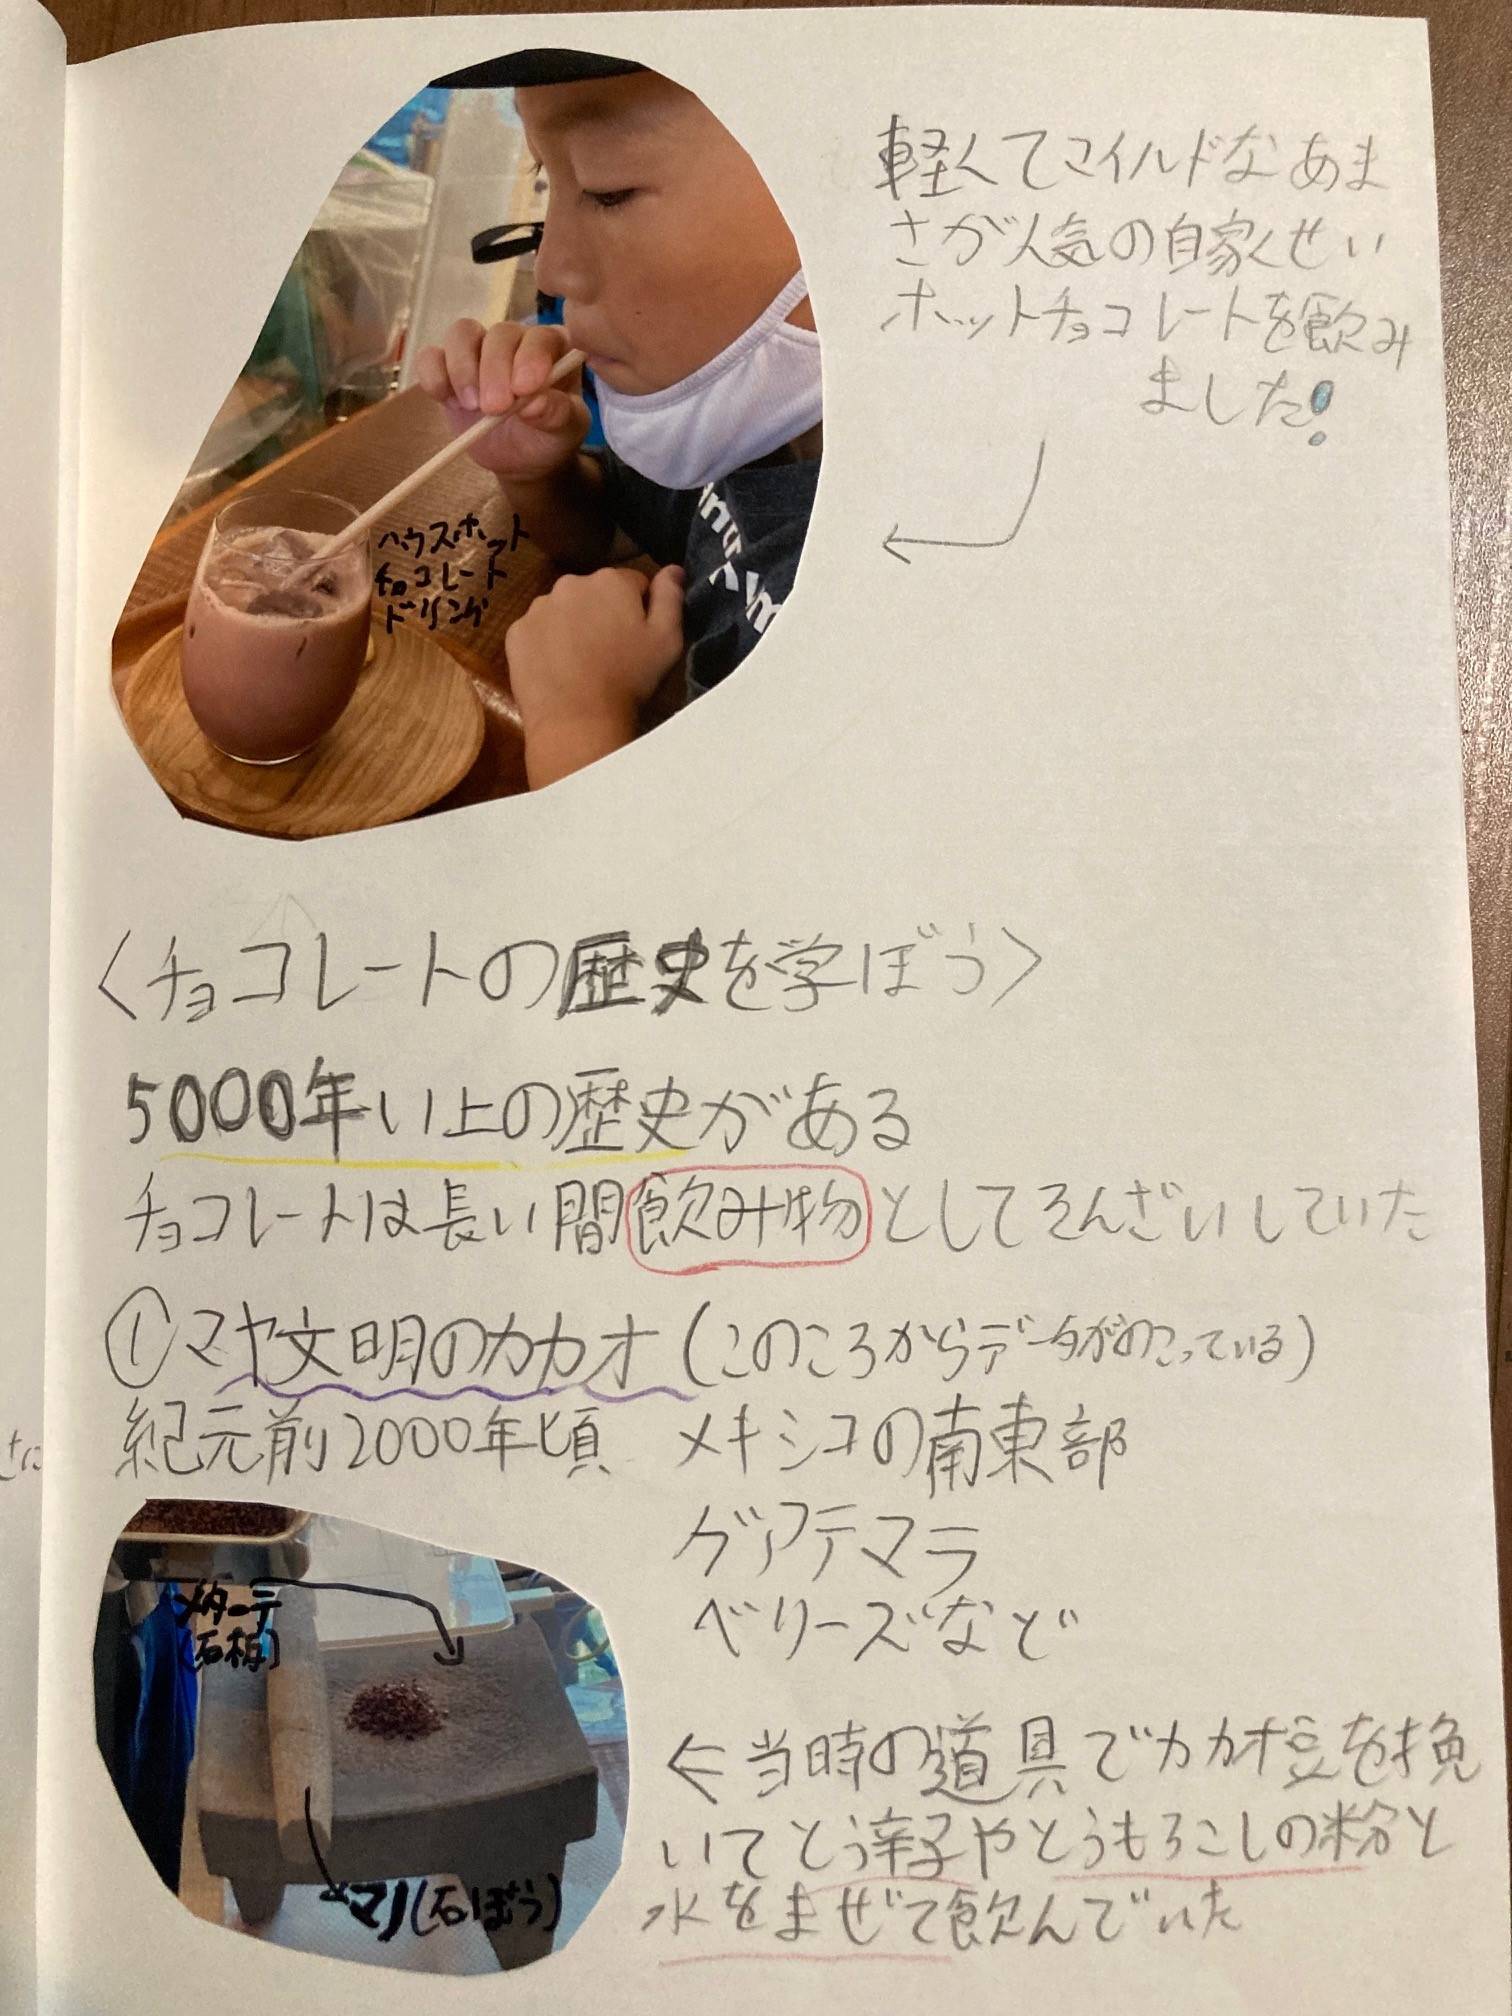 軽くてマイルドなあま
さが人気の自家くせい
ホットチョコレートを飲み
ました!
ハウスホット
チョコレート
ドリンク
〈チョコレートの歴史を学ぼう〉
5000年い上の歴史がある
チョコレートは長い間飲み物としてそんざいしていた
①マヤ文明のカカオ(このころからデータがのこっている)
紀元前2000年頃 メキシコの南東部
グアテマラ
ベリーズなど
メターテ
(石板)
マノ(石ぼう)
←当時の道具でカカオ豆を挽
いてとう辛子やとうもろこしの粉と
水をまぜて飲んでいた